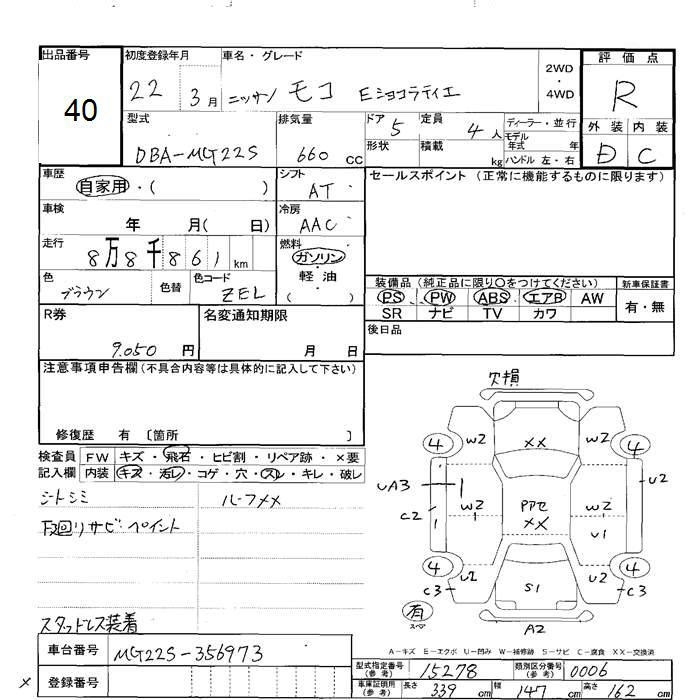 出品番号
40
初度登録年月
22 3月
車名・グレード
ニッサン モコ Eショコラティエ
2WD
・
4WD
評価点
R
型式
DBA-MG22S
排気量
660 cc
ドア 5
定員 4人
ディーラー・並行
形状
積載 kg
モデル年式 年
ハンドル 左・右
外装 内装
D C
車歴
自家用・( )
シフト
AT
セールスポイント(正常に機能するものに限ります)
車検
年 月( 日)
冷房
AAC
走行
8万8千861km
燃料
ガソリン
軽油
( )
色
ブラウン
色替
色コード
ZEL
装備品(純正品に限り○をつけてください)
新車保証書
PS PW ABS エアB AW
SR ナビ TV カワ
有・無
R券
9.050円
名変通知期限
月 日
後日品
注意事項申告欄(不具合内容等は具体的に記入して下さい)
修復歴 有 〔箇所 〕
検査員
記入欄
FW キズ・飛石・ヒビ割・リペア跡・×要
内装 キズ・汚レ・コゲ・穴・スレ・キレ・破レ
シートシミ
ルーフメメ
下回りサビ・ペイント
スタッドレス装着
欠損
4 W2 XX W2 4
UA3 U2
C2 W2 PPアセ XX W2
U1
4 U2 S1 U2 4
C3 C3
有
スペア
A2
A-キズ E-エクボ U-凹み W-補修跡 S-サビ C-腐食 XX-交換済
車台番号
MG22S-356973
登録番号
×
型式指定番号(参考) 15278
類別区分番号(参考) 0006
車庫証明用(参考) 長さ 339cm 幅 147cm 高さ 162cm